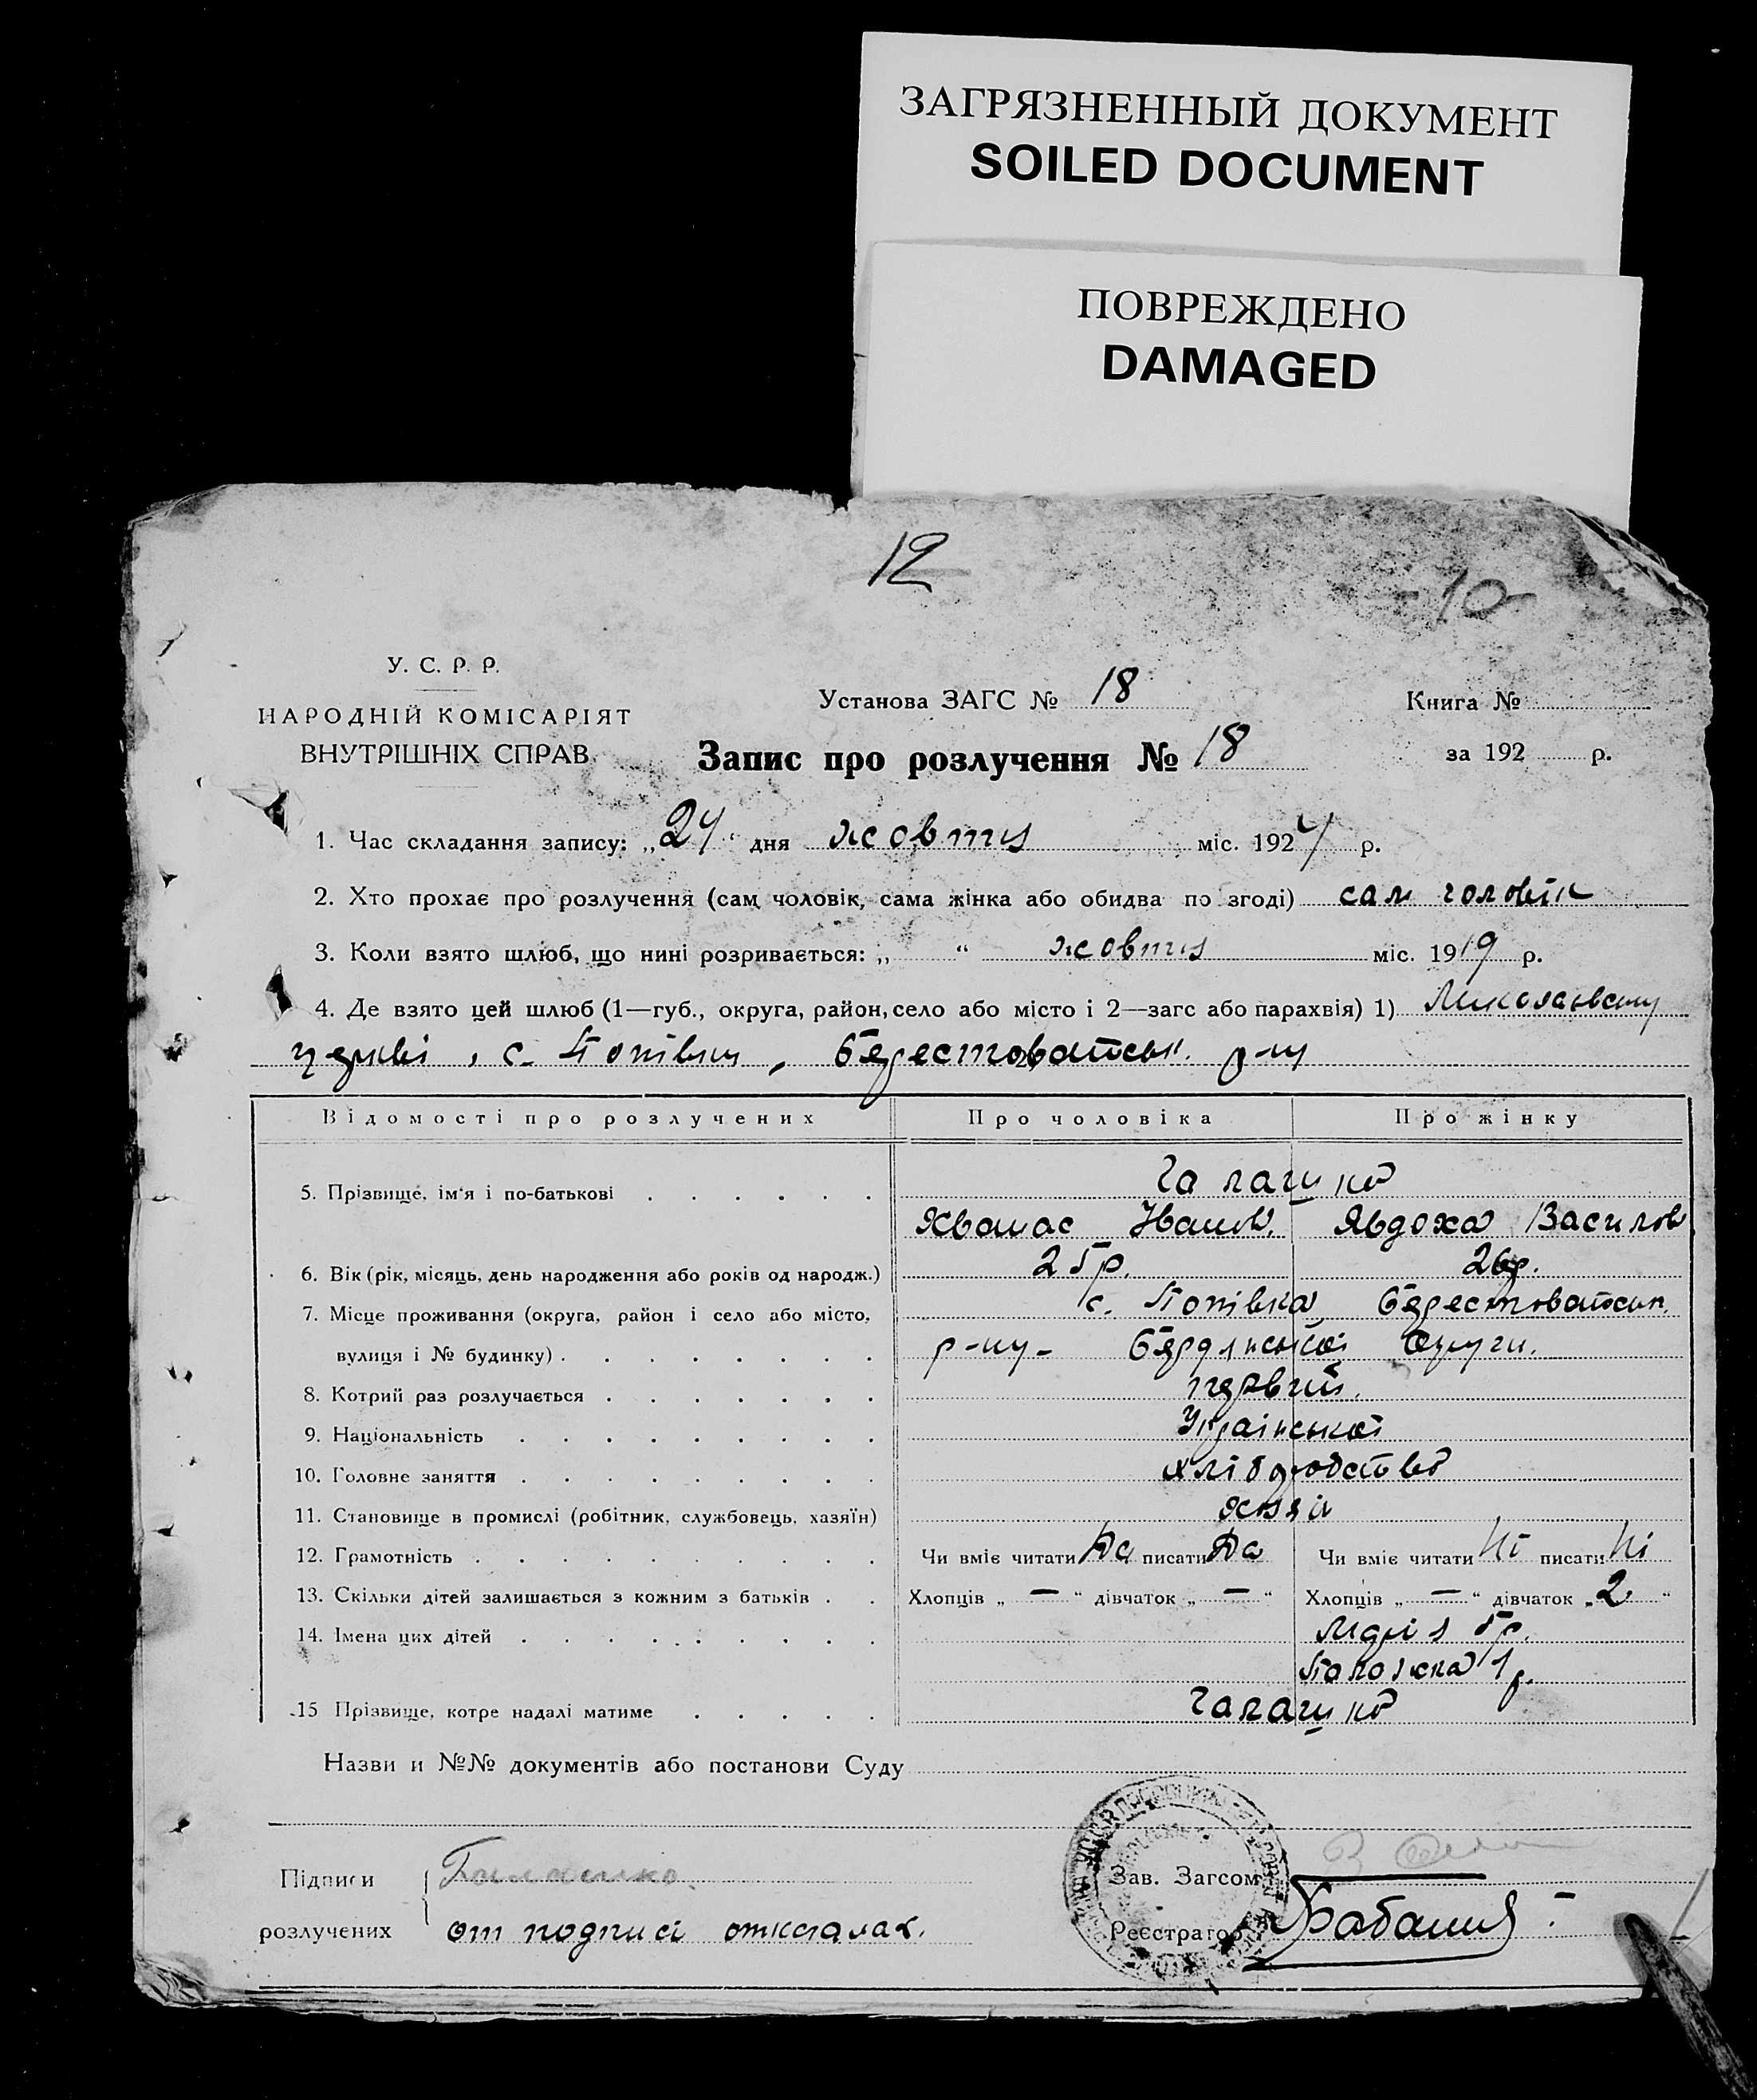 ЗАГРЯЗНЕННЫЙ ДОКУМЕНТ
SOILED DOCUMENT
ПОВРЕЖДЕНО
DAMAGED
12
10
У. С. Р. Р.
НАРОДНІЙ КОМІСАРІЯТ
ВНУТРІШНІХ СПРАВ
Установа ЗАГС № 18
Книга №
Запис про розлучення № 18
за 192 р.
1. Час складання запису: „24“ дня жовтня міс. 1924 р.
2. Хто прохає про розлучення (сам чоловік, сама жінка або обидва по згоді) сам чоловік
3. Коли взято шлюб, що нині розривається: „ “ жовтня міс. 1919 р.
4. Де взято цей шлюб (1—губ., округа, район, село або місто і 2—загс або парахвія) 1) Миколаївську
церкві, с. Попівки, Берестоватськ. р-ну
Відомості про розлучених Про чоловіка Про жінку
5. Прізвище, ім'я і по-батькові Галагшко
Хванас Іванов. Явдоха Василов
6. Вік (рік, місяць, день народження або років од народж.) 25р. 26р.
7. Місце проживання (округа, район і село або місто, с. Попівка Берестоватськ.
вулиця і № будинку) р-ну- Бердянської Округи.
8. Котрий раз розлучається первий.
9. Національність Української
10. Головне заняття хлібороб­ство
11. Становище в промислі (робітник, службовець, хазяїн) хазяїн
12. Грамотність Чи вміє читати Да писати Да Чи вміє читати Ні писати Ні
13. Скільки дітей залишається з кожним з батьків Хлопців „ — “ дівчаток „ — “ Хлопців „ — “ дівчаток „ 2 “
14. Імена цих дітей Марія 5р.
Палажка 1р.
15 Прізвище, котре надалі матиме
Назви и №№ документів або постанови Суду
Підписи
Зав. Загсом
розлучених от подписи отказалах.
Реєстратор